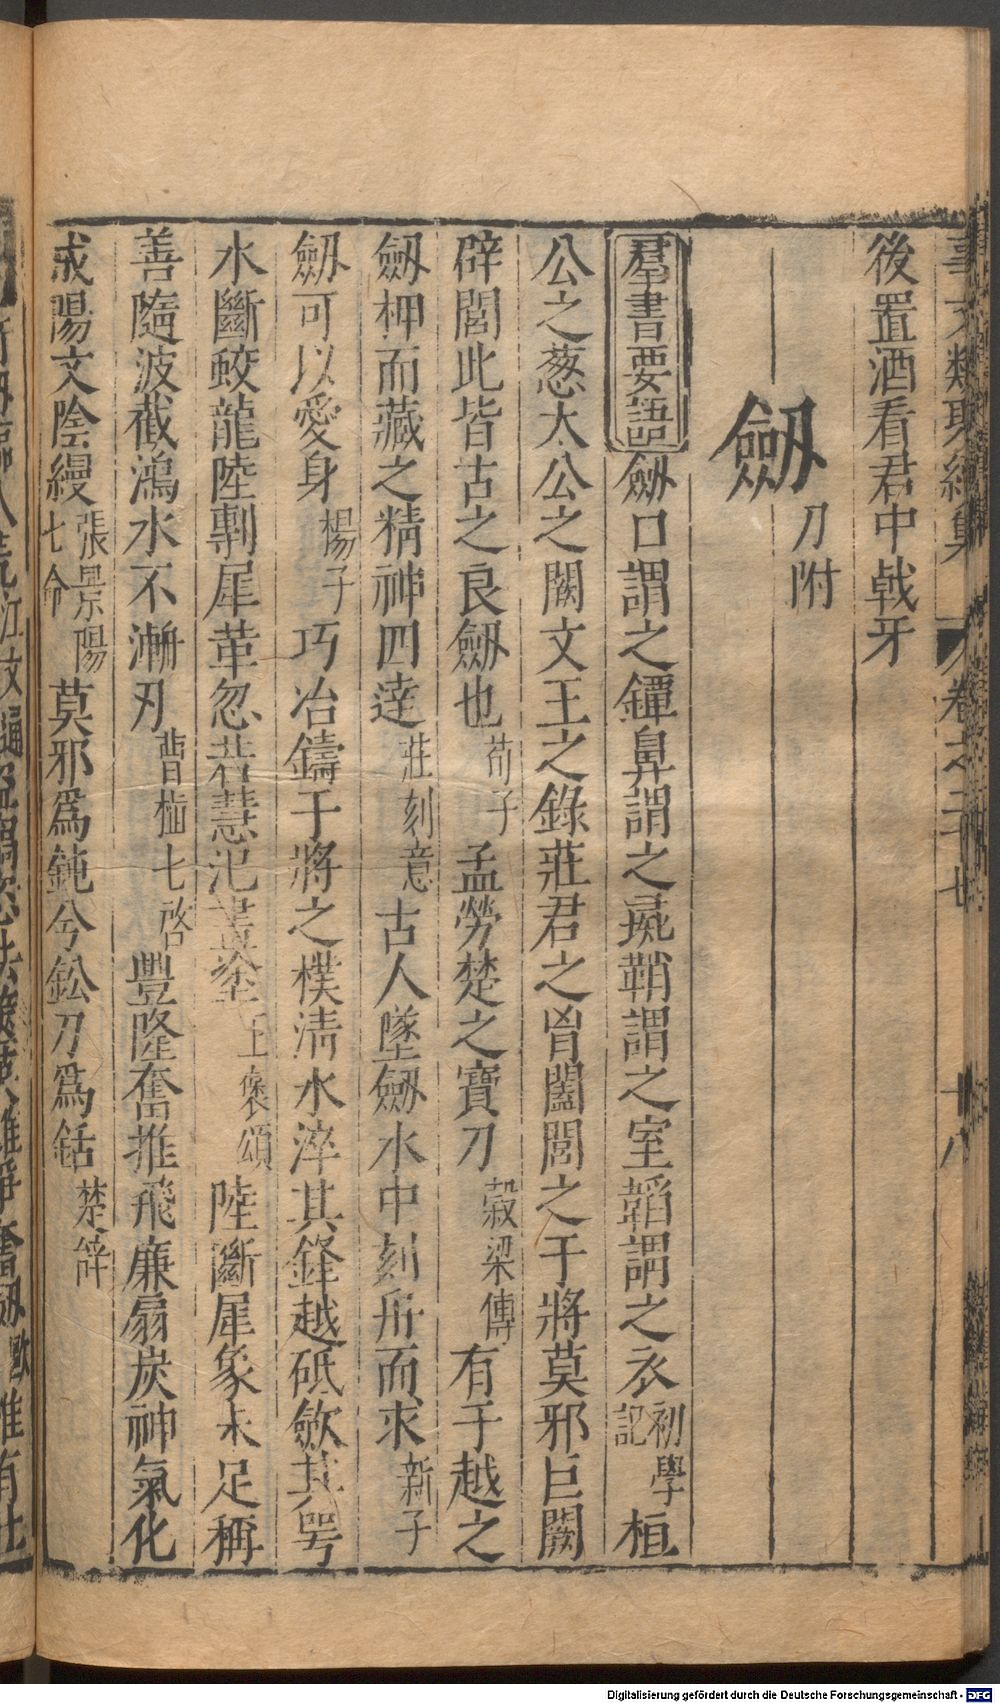 後置酒看君中戟牙
劒 刀附
羣書要語 劒口謂之鐔鼻謂之璏鞘謂之室韜謂之衣 初學記 桓
公之葱太公之闕文王之錄莊君之曶闔閭之干將莫邪巨闕
辟閭此皆古之良劒也 荀子 孟勞楚之寶刀 穀梁傳 有于越之
劒柙而藏之精神四達 莊刻意 古人墜劒水中刻舟而求 新子
劒可以愛身 楊子 巧冶鑄干將之樸淸水淬其鋒越砥斂其咢
水斷蛟龍陸剸犀革忽若慧氾畫塗 王襃頌 陸斷犀象未足稱
善隨波截鴻水不漸刃 曹植七啓 豐隆奮推飛廉扇炭神氣化
成陽文陰縵 張景陽七命 莫邪爲鈍兮鈆刀爲銛 楚辭
卷之二七
十八
Digitalisierung gefördert durch die Deutsche Forschungsgemeinschaft - DFG